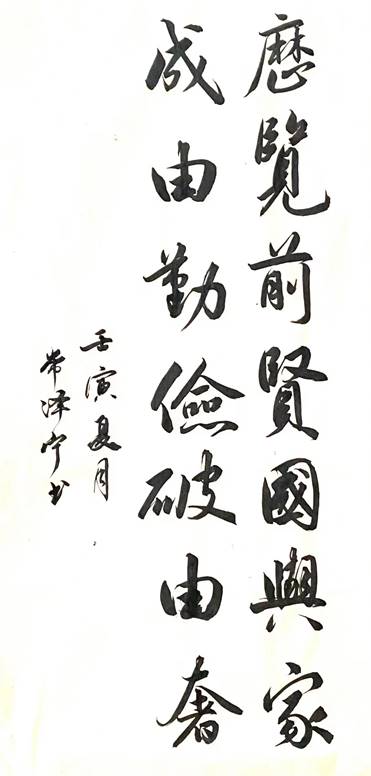 歷覽前賢國與家
成由勤儉破由奢
壬寅夏月
常泽宁书